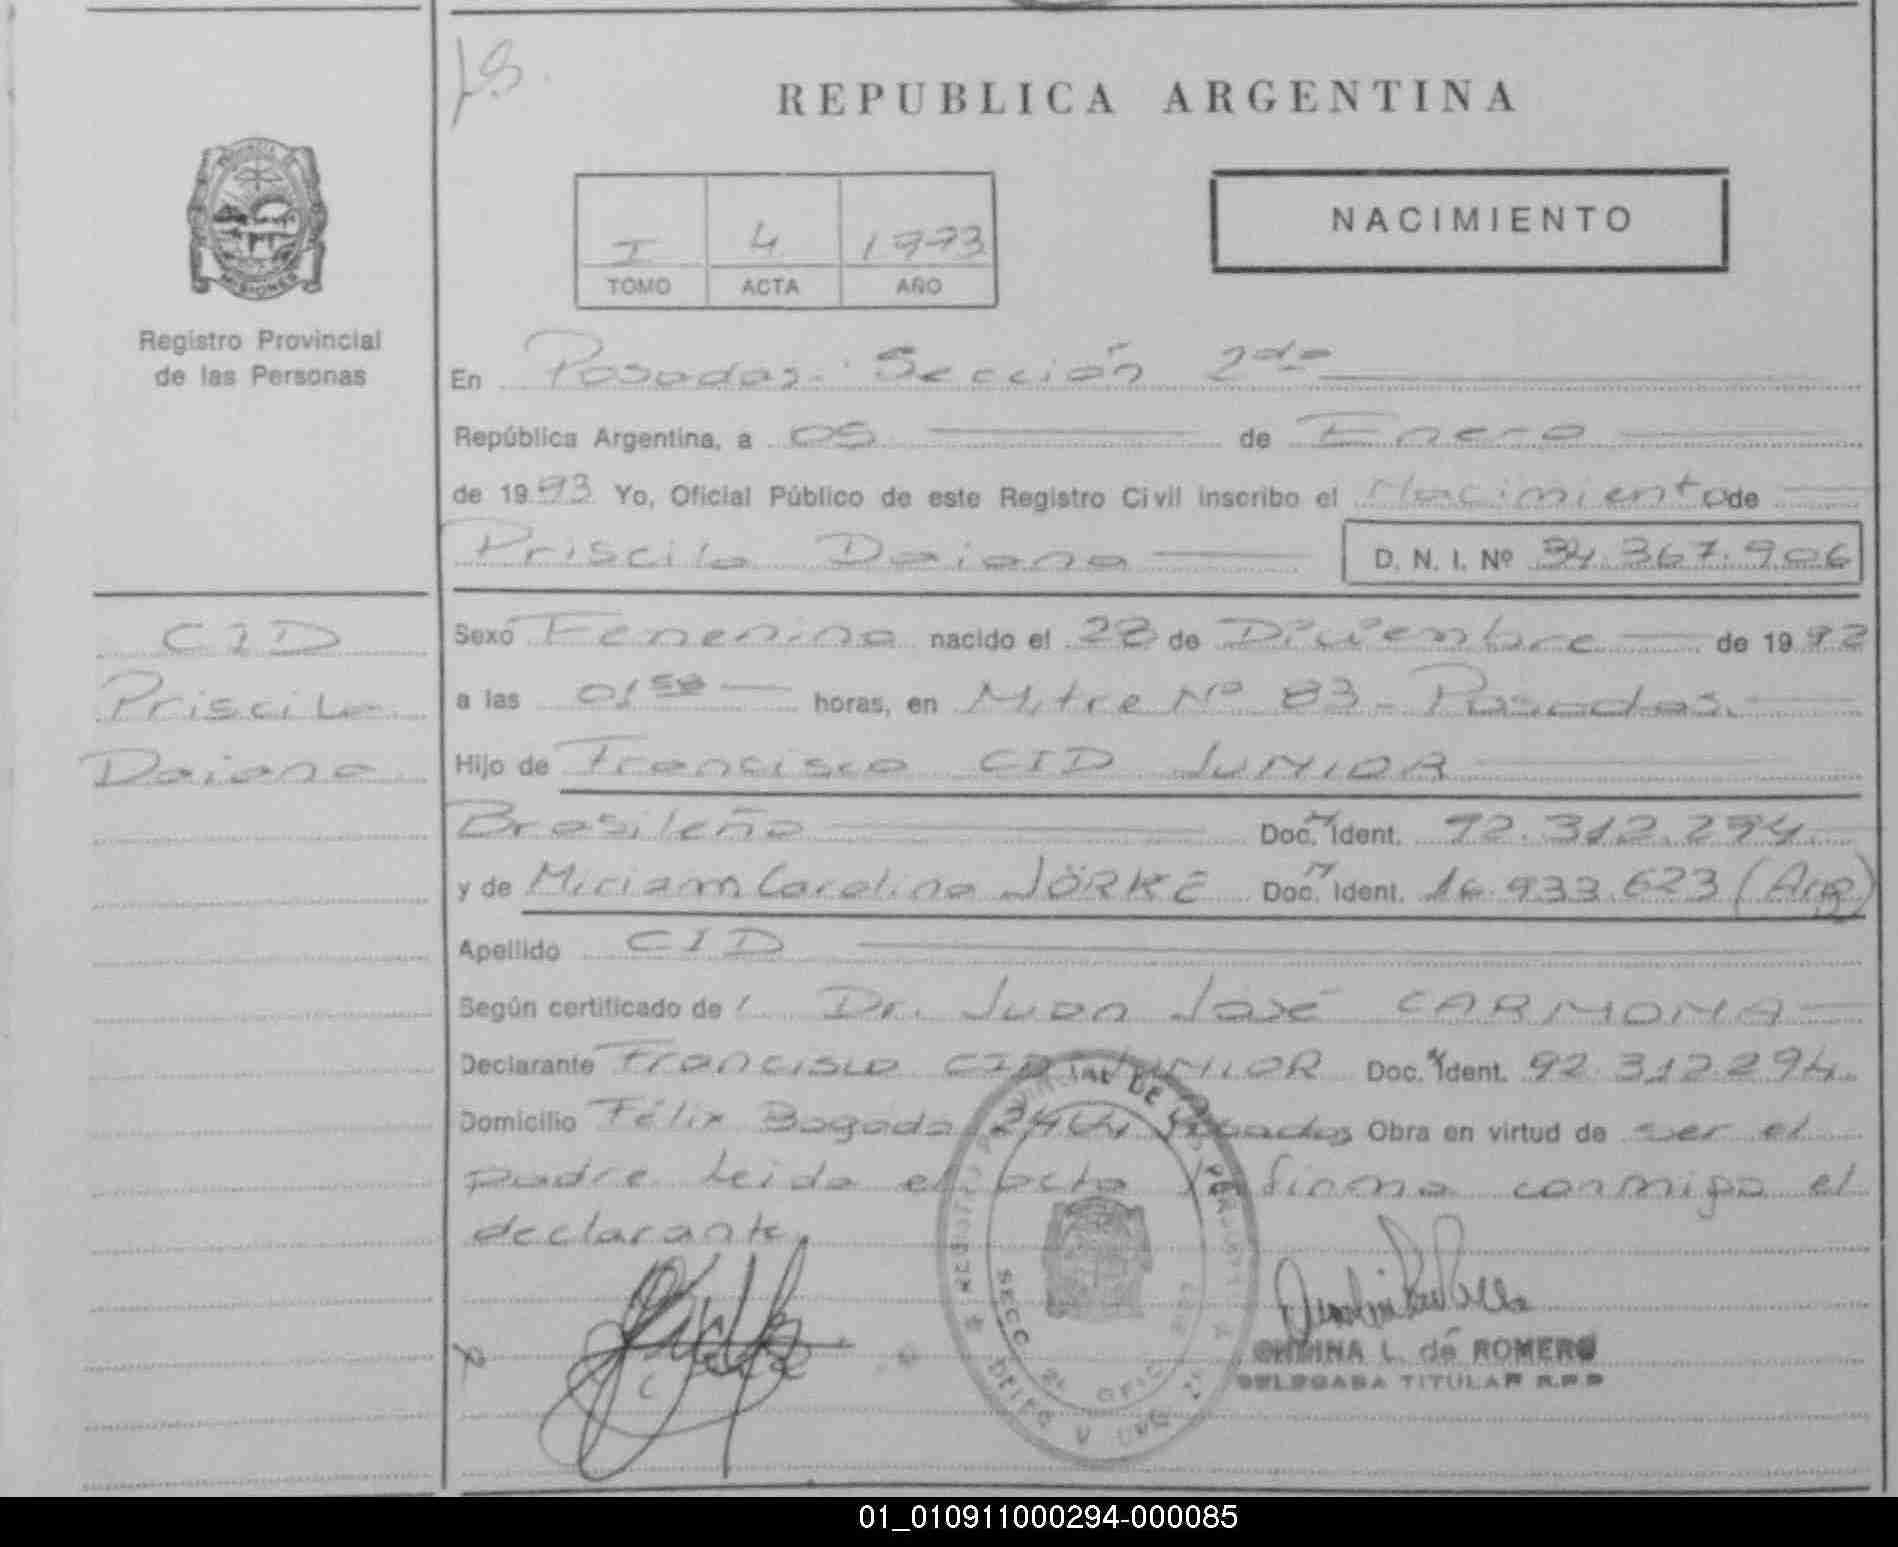 REPUBLICA ARGENTINA
PROVINCIA
MISIONES
Registro Provincial
de las Personas
NACIMIENTO
I 4 1993
TOMO ACTA AÑO
En Posadas. Sección 2da
República Argentina, a 05 de Enero
de 1993 Yo, Oficial Público de este Registro Civil inscribo el Nacimiento de
Priscila Daiana D. N. I. Nº 34.367.906
CID
Priscila
Daiana
Sexo Femenino nacido el 28 de Diciembre de 1992
a las 01 58 horas, en Mitre Nº 83 - Posadas.
Hijo de Francisco CID JUNIOR
Brasileño Doc. Ident. 92.312.294.
y de Miriam Carolina JÖRKE Doc. Ident. 16.933.623 (Arg)
Apellido CID
Según certificado de Dr. Juan José CARMONA
Declarante Francisco CID JUNIOR Doc. Ident. 92.312.294.
Domicilio Félix Bogado 2404 Posadas Obra en virtud de ser el
padre. Leida el acta la firma conmigo el
declarante.
L. de ROMERO
DELEGADA TITULAR R.P.P
01_010911000294-000085